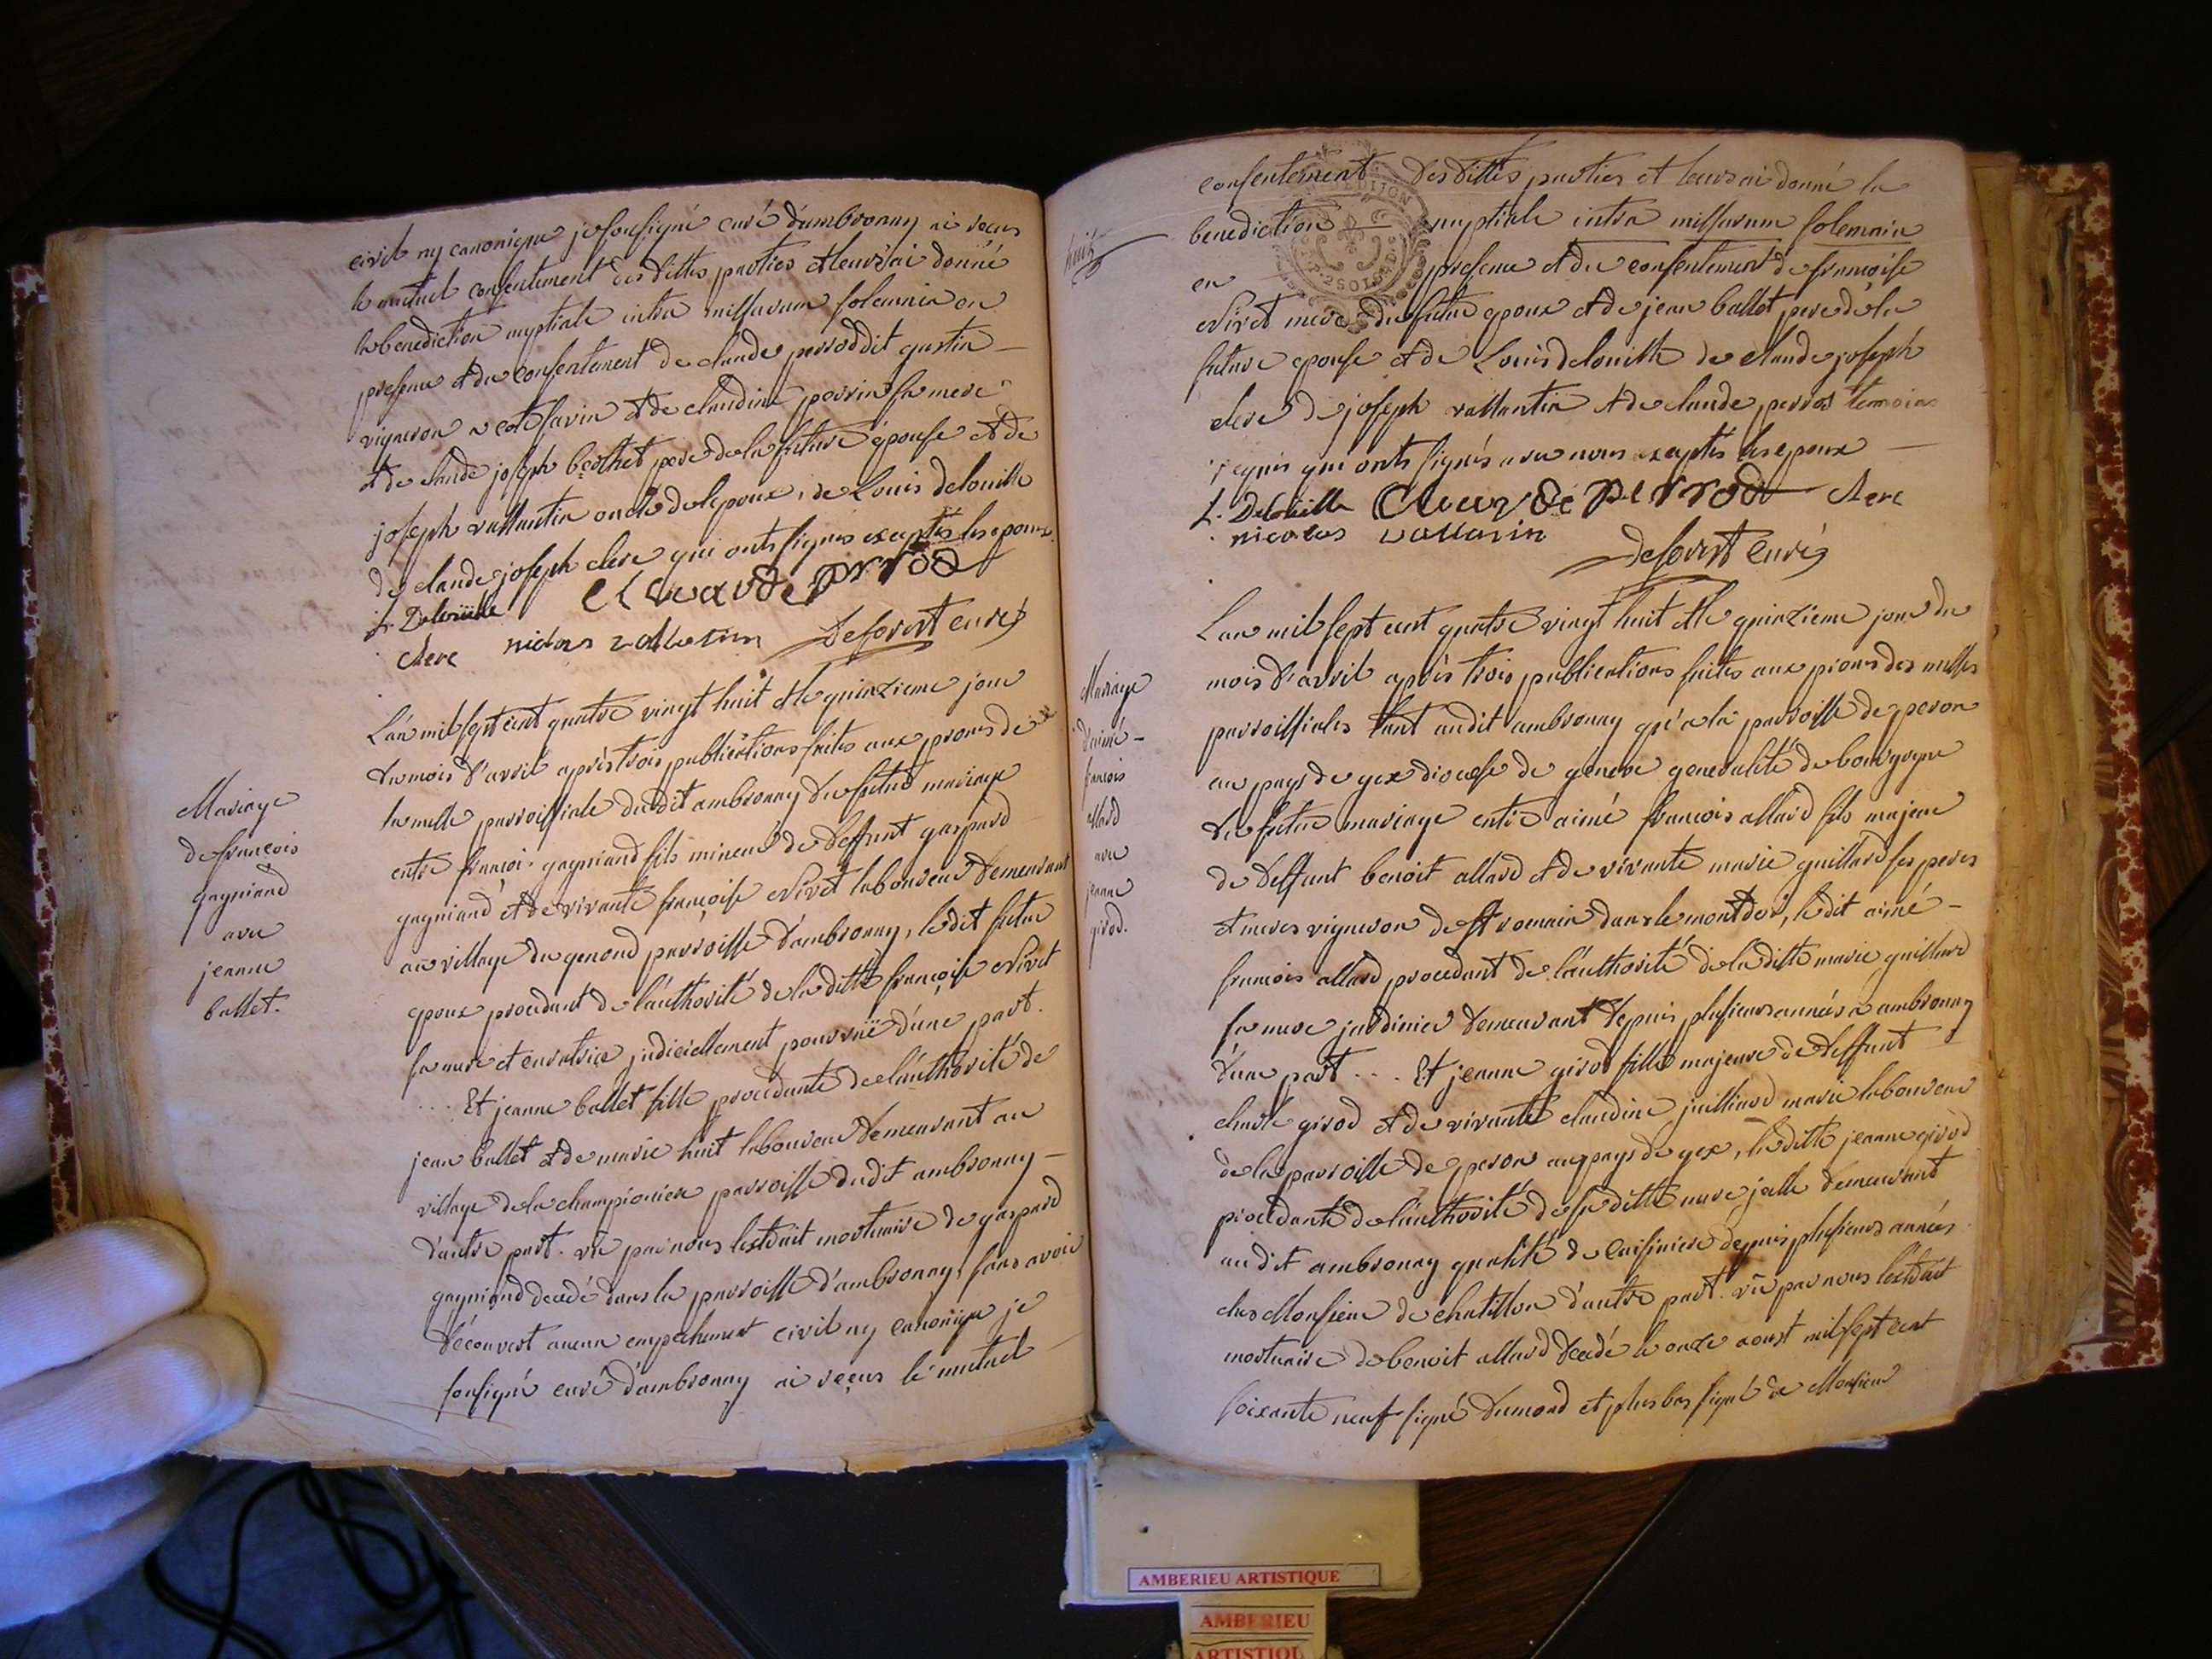 civil ny canonique je sousigné curé d'ambronay ai reçus
le mutuel consentement des dittes parties et leurs ai donné
la benediction nuptiale intra missarum solemnia en
presence et du consentement de claude perrod dit gustin
vigneron a cotesavin et de claudine perrin sa mere
et de claude joseph berthet pere de la future épouse et de
joseph vallantin oncle de lepoux, de Louis delouille
de claude joseph clerc qui onts signes exceptés les epoux.
L. Delouille claude perrod
clerc nicolas vallantin Deforest curé
L'an mil sept cent quatre vingt huit et le quinzieme jour
du mois d'avril après trois publications faites aux prones de
la messe parroissiale dudit ambronay du futur mariage
entre françois gagniand fils mineur de deffunt gaspard
gagniand et de vivante françoise nivet laboureur demeurant
au village du genoud parroisse d'ambronay, le dit futur
epoux procedant de l'authorité de la ditte françoise nivet
sa mere et curatrice judiciellement pourvuë d'une part.
... Et jeanne ballet fille procedante de l'authorité de
jean ballet et de marie huit laboureur demeurant au
village de la championiere parroisse dudit ambronay
d'autre part. vû par nous lextrait mortuaire de gaspard
gagniand decedé dans la parroisse d'ambronay, sans avoir
découvert aucun empechement civil ny canonique je
sousigné curé d'ambronay ai reçus le mutuel
Mariage
de françois
gagniand
avec
jeanne
ballet.
huit
consentement des dittes parties et leurs ai donné la
benediction nuptiale intra missarum solemnia
en presence et du consentement de françoise
nivet mere du futur epoux et de jean ballet pere de la
future epouse et de Louis delouille de claude joseph
clerc de joseph vallantin et de claude perrod temoins
requis qui onts signés avec nous exceptés les epoux
L. Delouille Claude perrod clerc
nicolas vallantin
Deforest curé
L'an mil sept cent quatre vingt huit et le quinzieme jour du
mois d'avril après trois publications faites aux prones des messes
parroissiales tant audit ambronay qu'a la parroisse de peron
au pays de gex diocese de géneve generalité de bourgogne
du futur mariage entre aimé françois allard fils majeur
de deffunt benoit allard et de vivante marie guillard ses peres
et meres vigneron de st romain dans le mont dor, le dit aimé
françois allard procedant de l'authorité de la ditte marie guillard
sa mere jardinier demeurant depuis plusieurs années a ambronay
d'une part ... Et jeanne girod fille majeure de deffunt
claude girod et de vivante claudine juilliard marie laboureur
de la parroisse de peron au pays de gex, la ditte jeanne girod
procedante de l'authorité de sa ditte mere jcelle demeurant
audit ambronay qualité de cuisiniere depuis plusieurs années
ches Monsieur de chatillon d'autre part. vû par nous lextrait
mortuaire de benoit allard decedé le onze aoust mil sept cent
soixante neuf signé dumond et plus bas signé de Monsieur
Mariage
d'aimé
françois
allard
avec
jeanne
girod.
AMBERIEU ARTISTIQUE
AMBERIEU